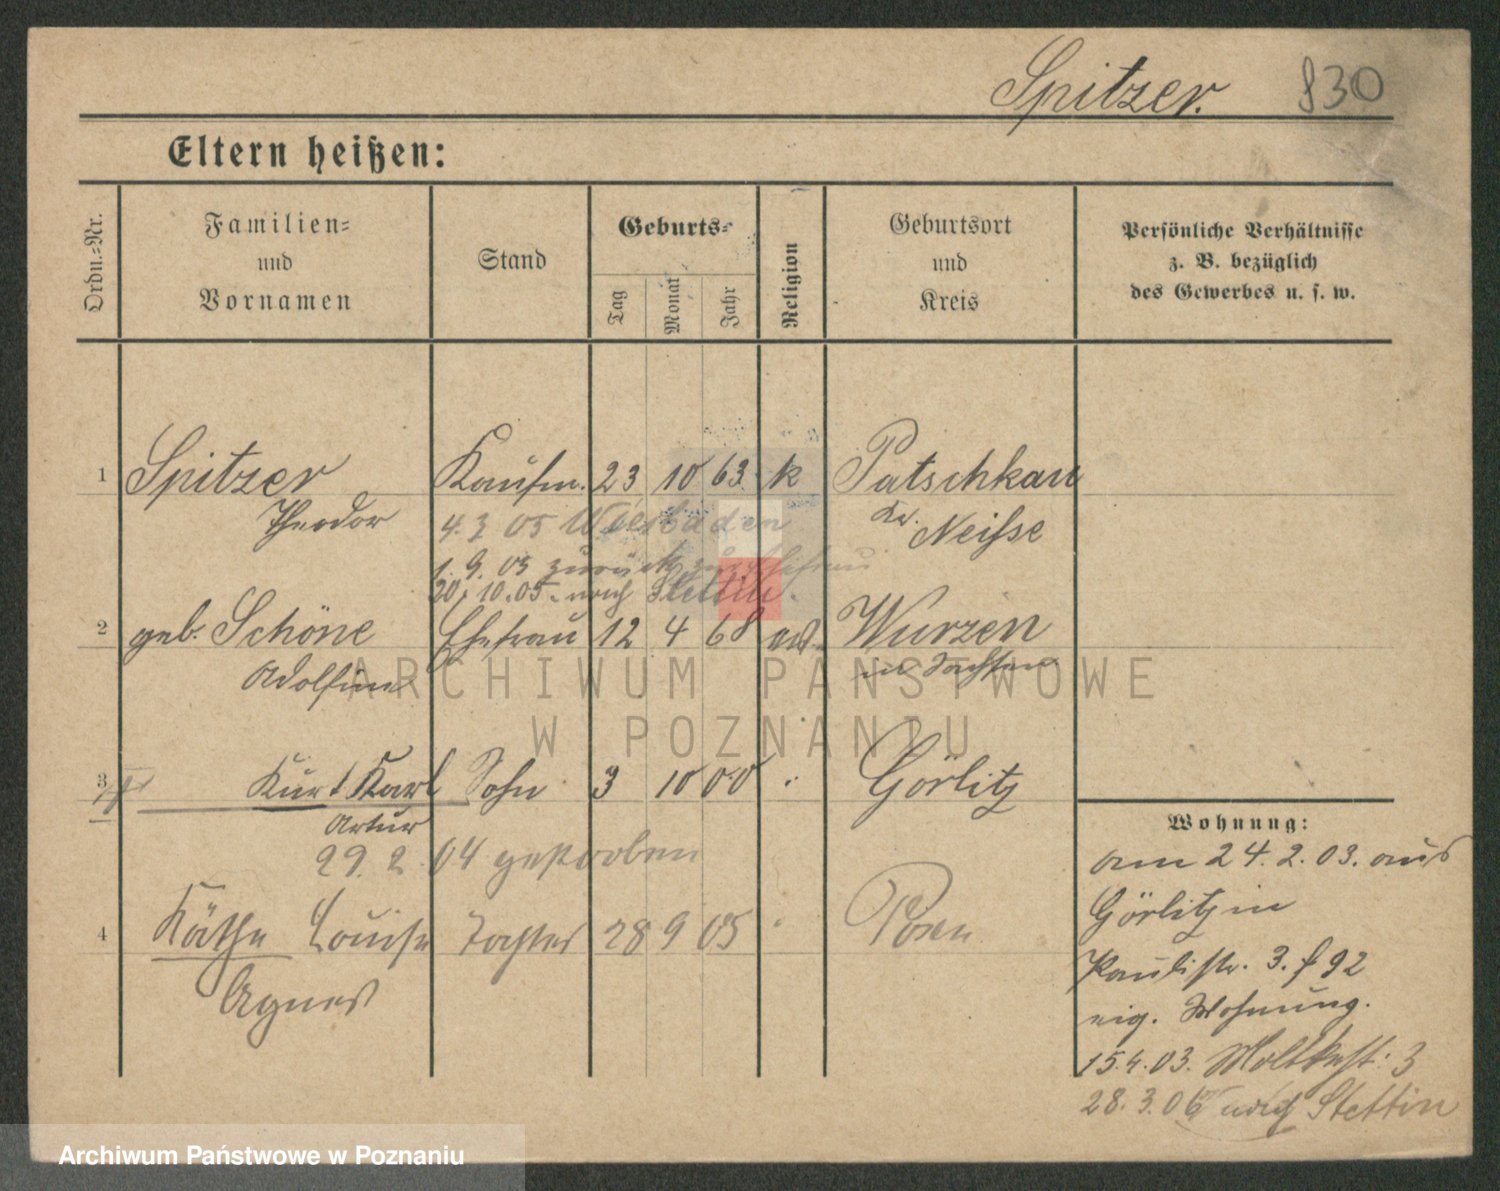 Spitzer. 830
Eltern heißen:
Ordn.-Nr.
Familien-
und
Vornamen
Stand
Geburts-
Tag
Monat
Jahr
Religion
Geburtsort
und
Kreis
Persönliche Verhältnisse
z. B. bezüglich
des Gewerbes u. s. w.
1 Spitzer Kaufm. 23 10 63 k Patschkau
Theodor 4.7 05 Wiesbaden Kr. Neisse
1. 9. 05 zurück
20. 10. 05. nach Stettin.
2 geb. Schöne Ehefrau 12 4 68 Wurzen
Adolfine in Sachsen
3 Kurt Karl Sohn 3 10 00 Görlitz
Artur
29. 2. 04 gestorben
4 Käthe Louise Tochter 28 9 05 Posen
Agnes
Wohnung:
am 24. 2. 03. aus
Görlitz in
Paulistr. 3. f 92
eig. Wohnung.
15.4.03. Moltkestr: 3
28. 3. 06 nach Stettin
ARCHIWUM PAŃSTWOWE
W POZNANIU
Archiwum Państwowe w Poznaniu